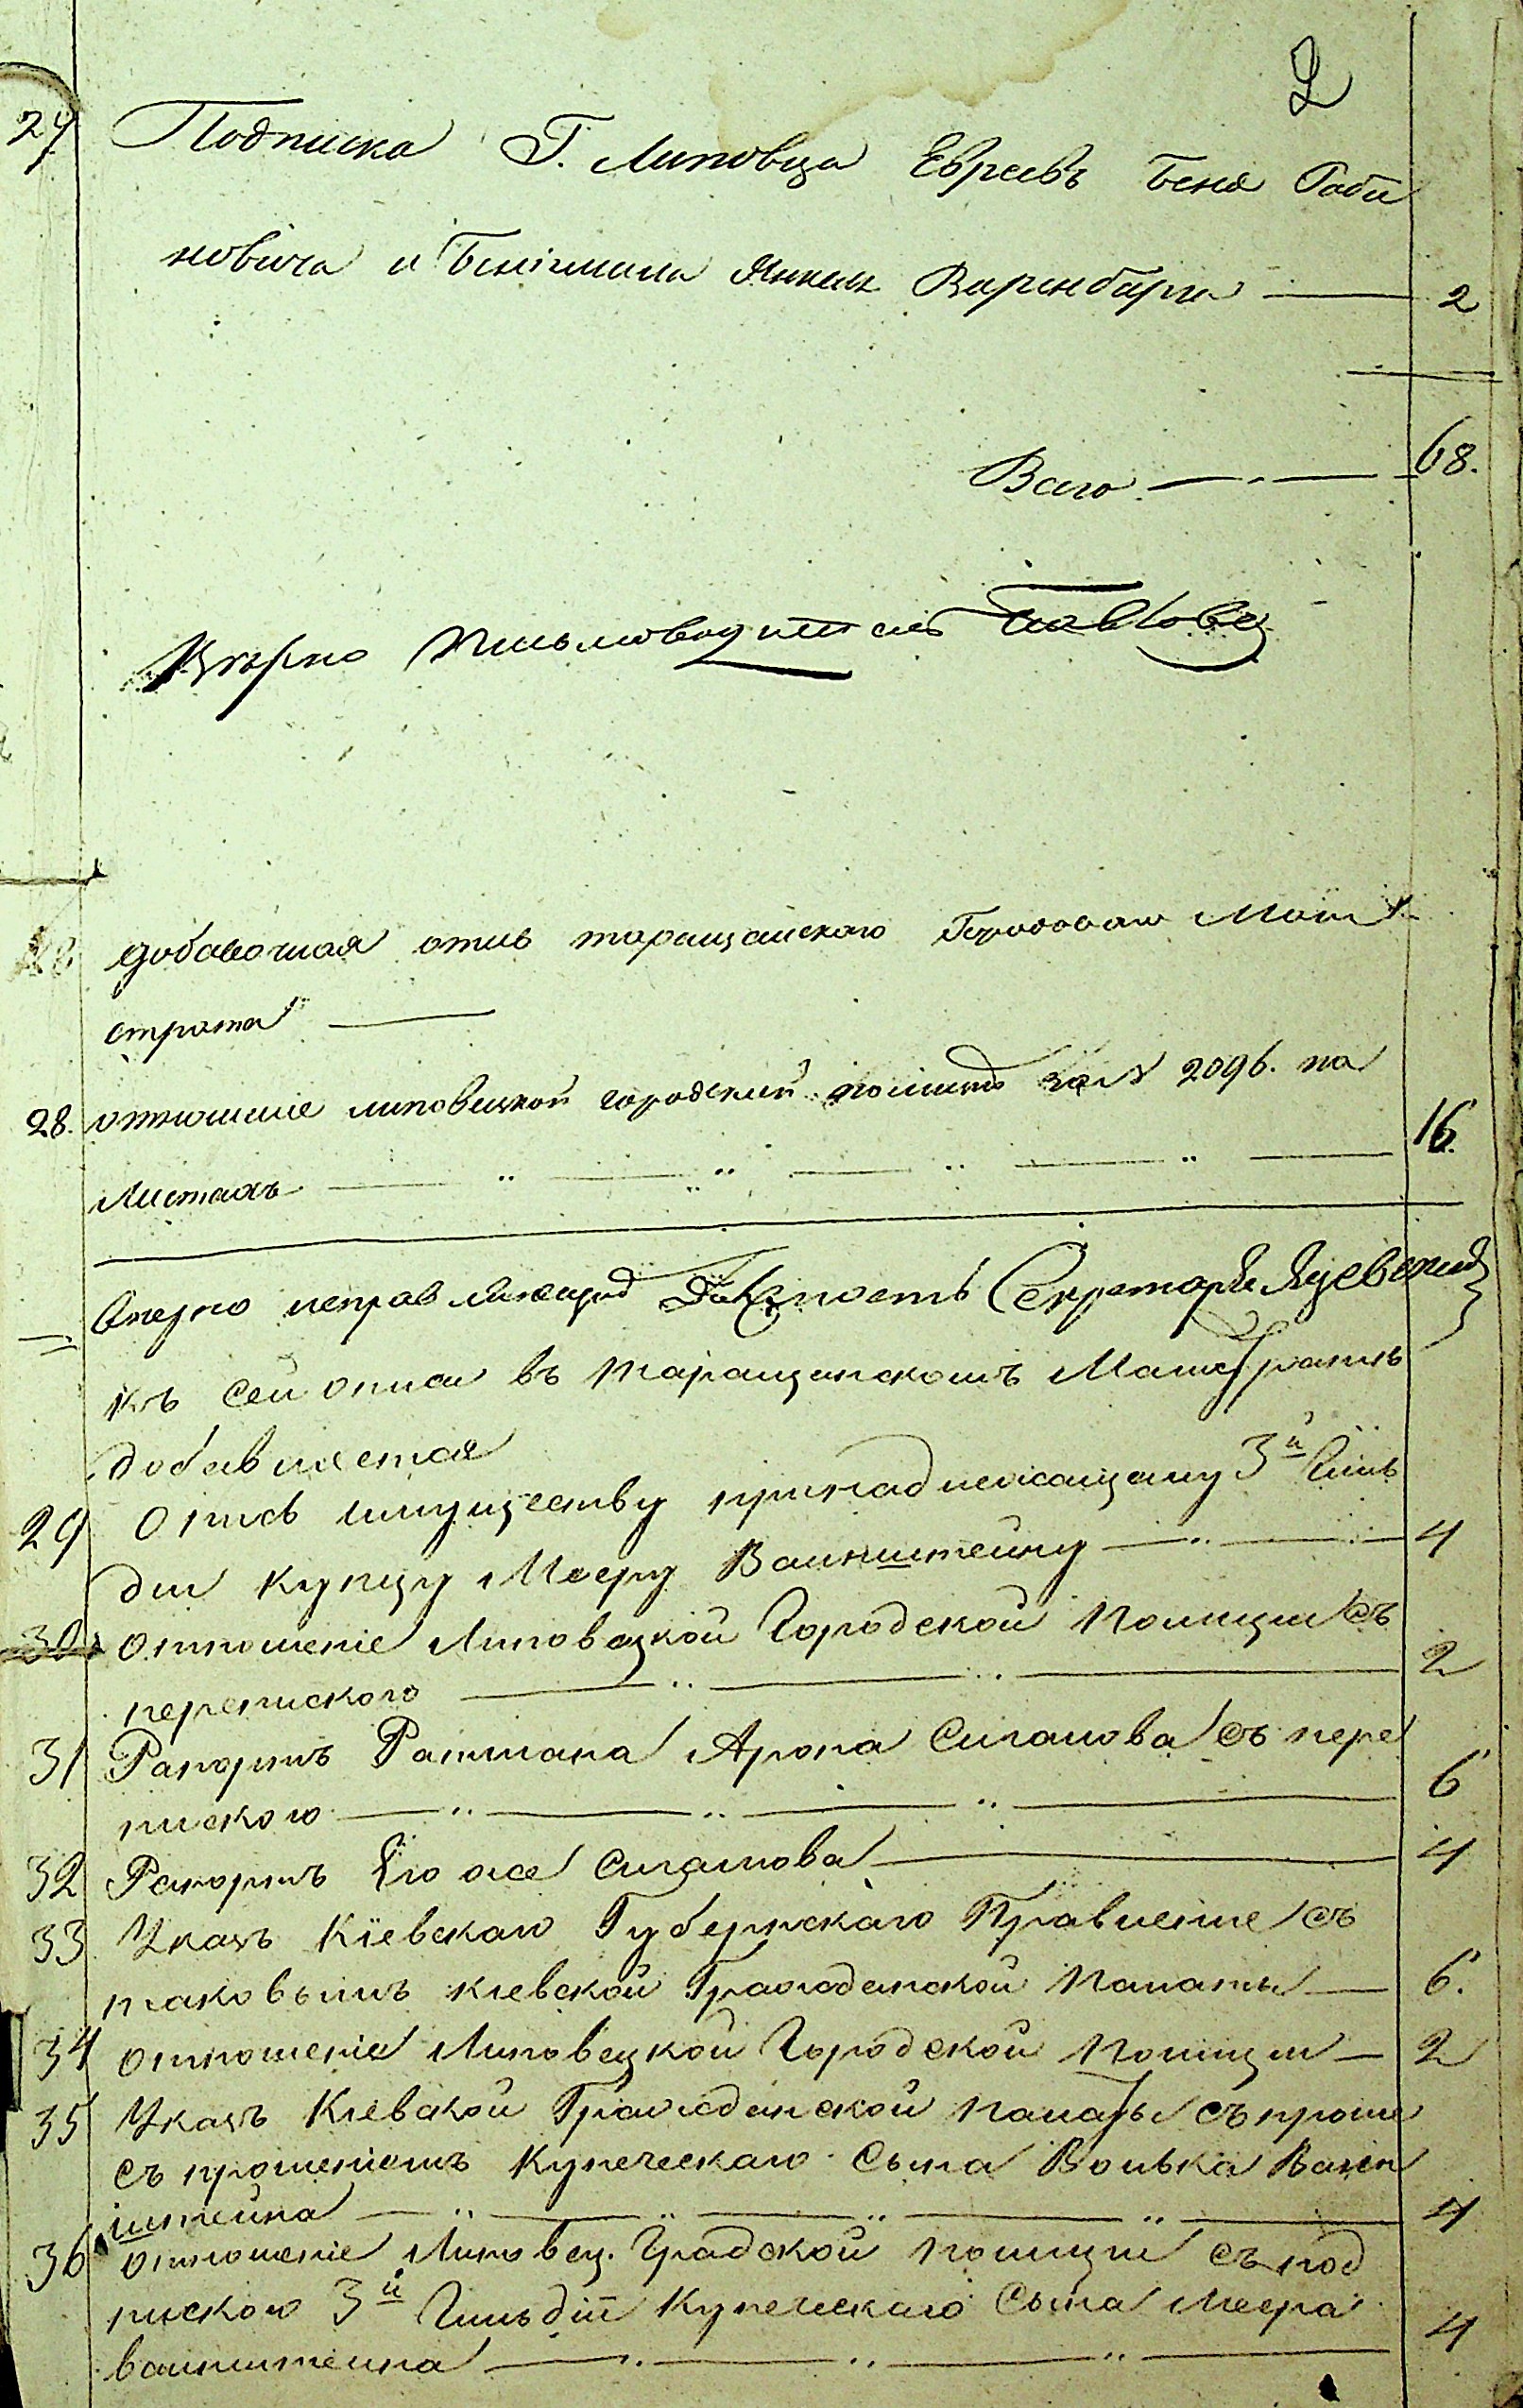 2
27 Подписка Г. Липовца Евреевъ Беня Раби
новича и Беніамина Янкеля Варенбарга — 2
Всего — 68.
Вѣрно Письмоводитель
28 добавочная опись таращанскаго Городоваго Маги
страта —
28. отношеніе липовецкой городской полиціи за № 2096. на
листахъ — " — " — " — " — 16.
Вѣрно исправляющій должность Секретаря
къ сей описи въ таращанскомъ Магистратѣ
добавляется
29 Опись имуществу принадлежащему 3й Гиль
діи купцу Мееру Ваинштейну — " — 4
30 отношеніе Липовецкой Городской Полиціи съ
перепискою — " — " — 2
31 Рапортъ Ратмана Арона Сигалова съ пере
пискою — " — " — " — 6
32 Рапортъ Его же Сигалова — 4
33 Указъ Кіевскаго Губернскаго Правленіе съ
таковымъ кіевской Гражданской Палаты — 6.
34 отношеніе Липовецкой Городской полиціи — 2
35 Указъ Кіевской Гражданской палаты съ проше
съ прошеніемъ Купеческаго Сына Волька Ваин
штейна — " — " — " — " — 4
36 отношеніе Липовец. Градской полиціи съ под
пискою 3й Гильдіи Купеческаго Сына Меера
ваинштейна — " — " — " — 4